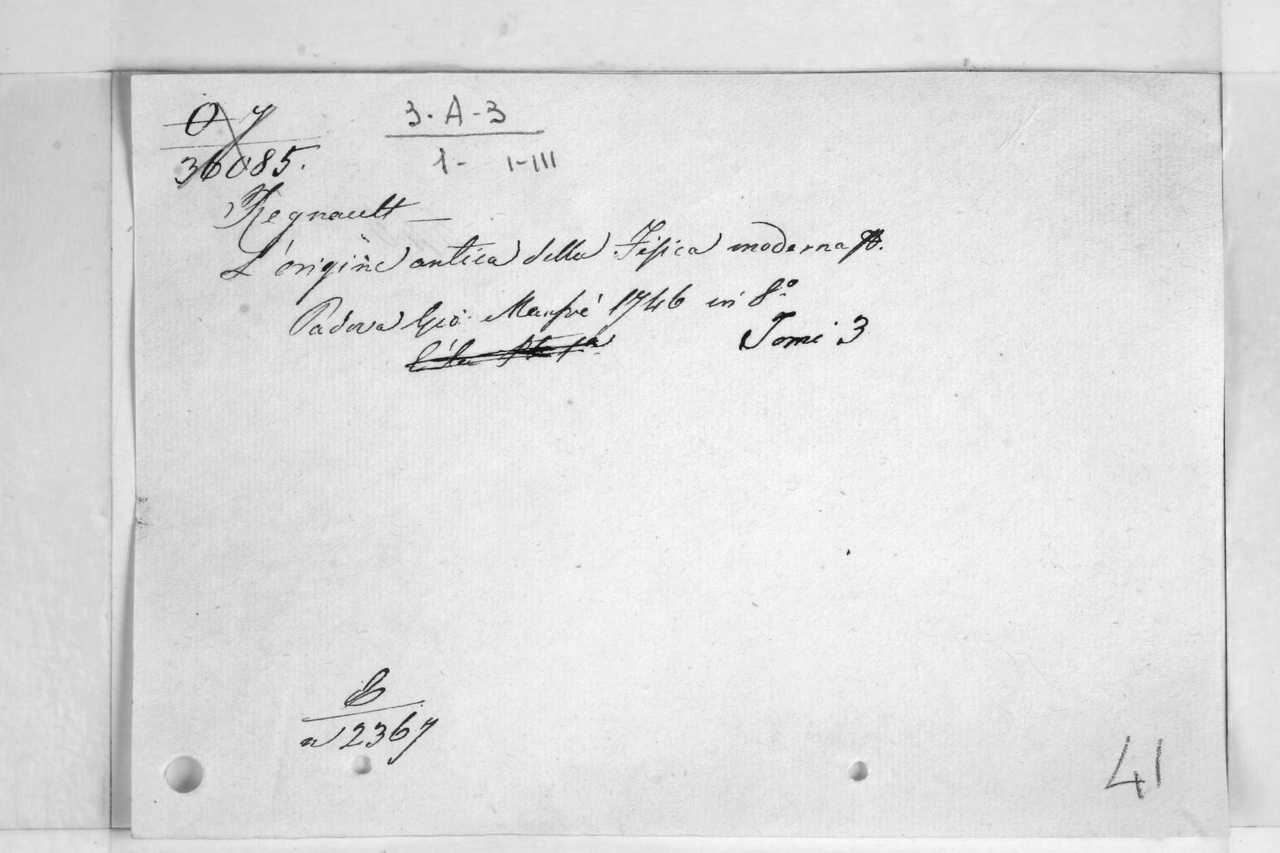 O 7
36085.
3-A-3
1- I-III
Regnault
L'origine antica della Fisica moderna
Padova Gio: Manfrè 1746 in 8°
Tomi 3
n 2367
41